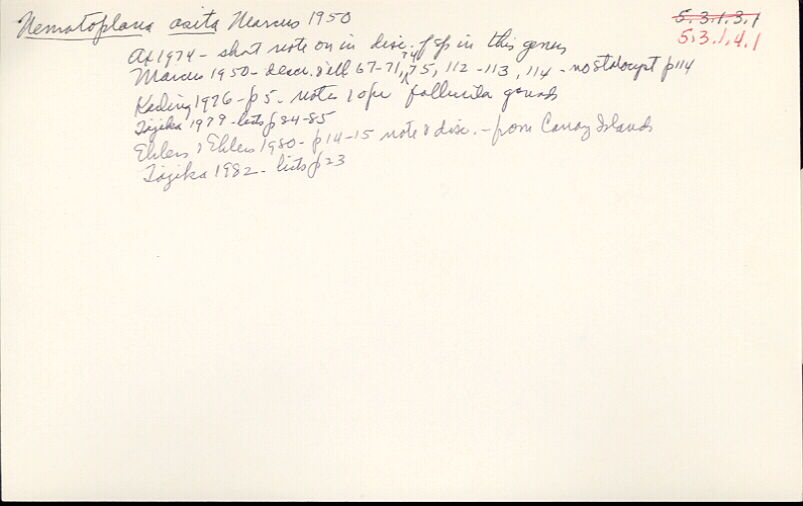 Nematoplana asita Marcus 1950
5.3.1.3.1
5.3.1.4.1
Ax 1974 - short note on in disc. of sp in this genus
Marcus 1950 - descr. & ill 67-71, 74, 75, 112-113, 114 - no statocyst p 114
Reading 1976 - p 5 - notes
Tajika 1979 - lists p 84-85
Ehlers & Ehlers 1980 - p 14-15 note & disc. - from Canary Islands
Tajika 1982 - lists p 23